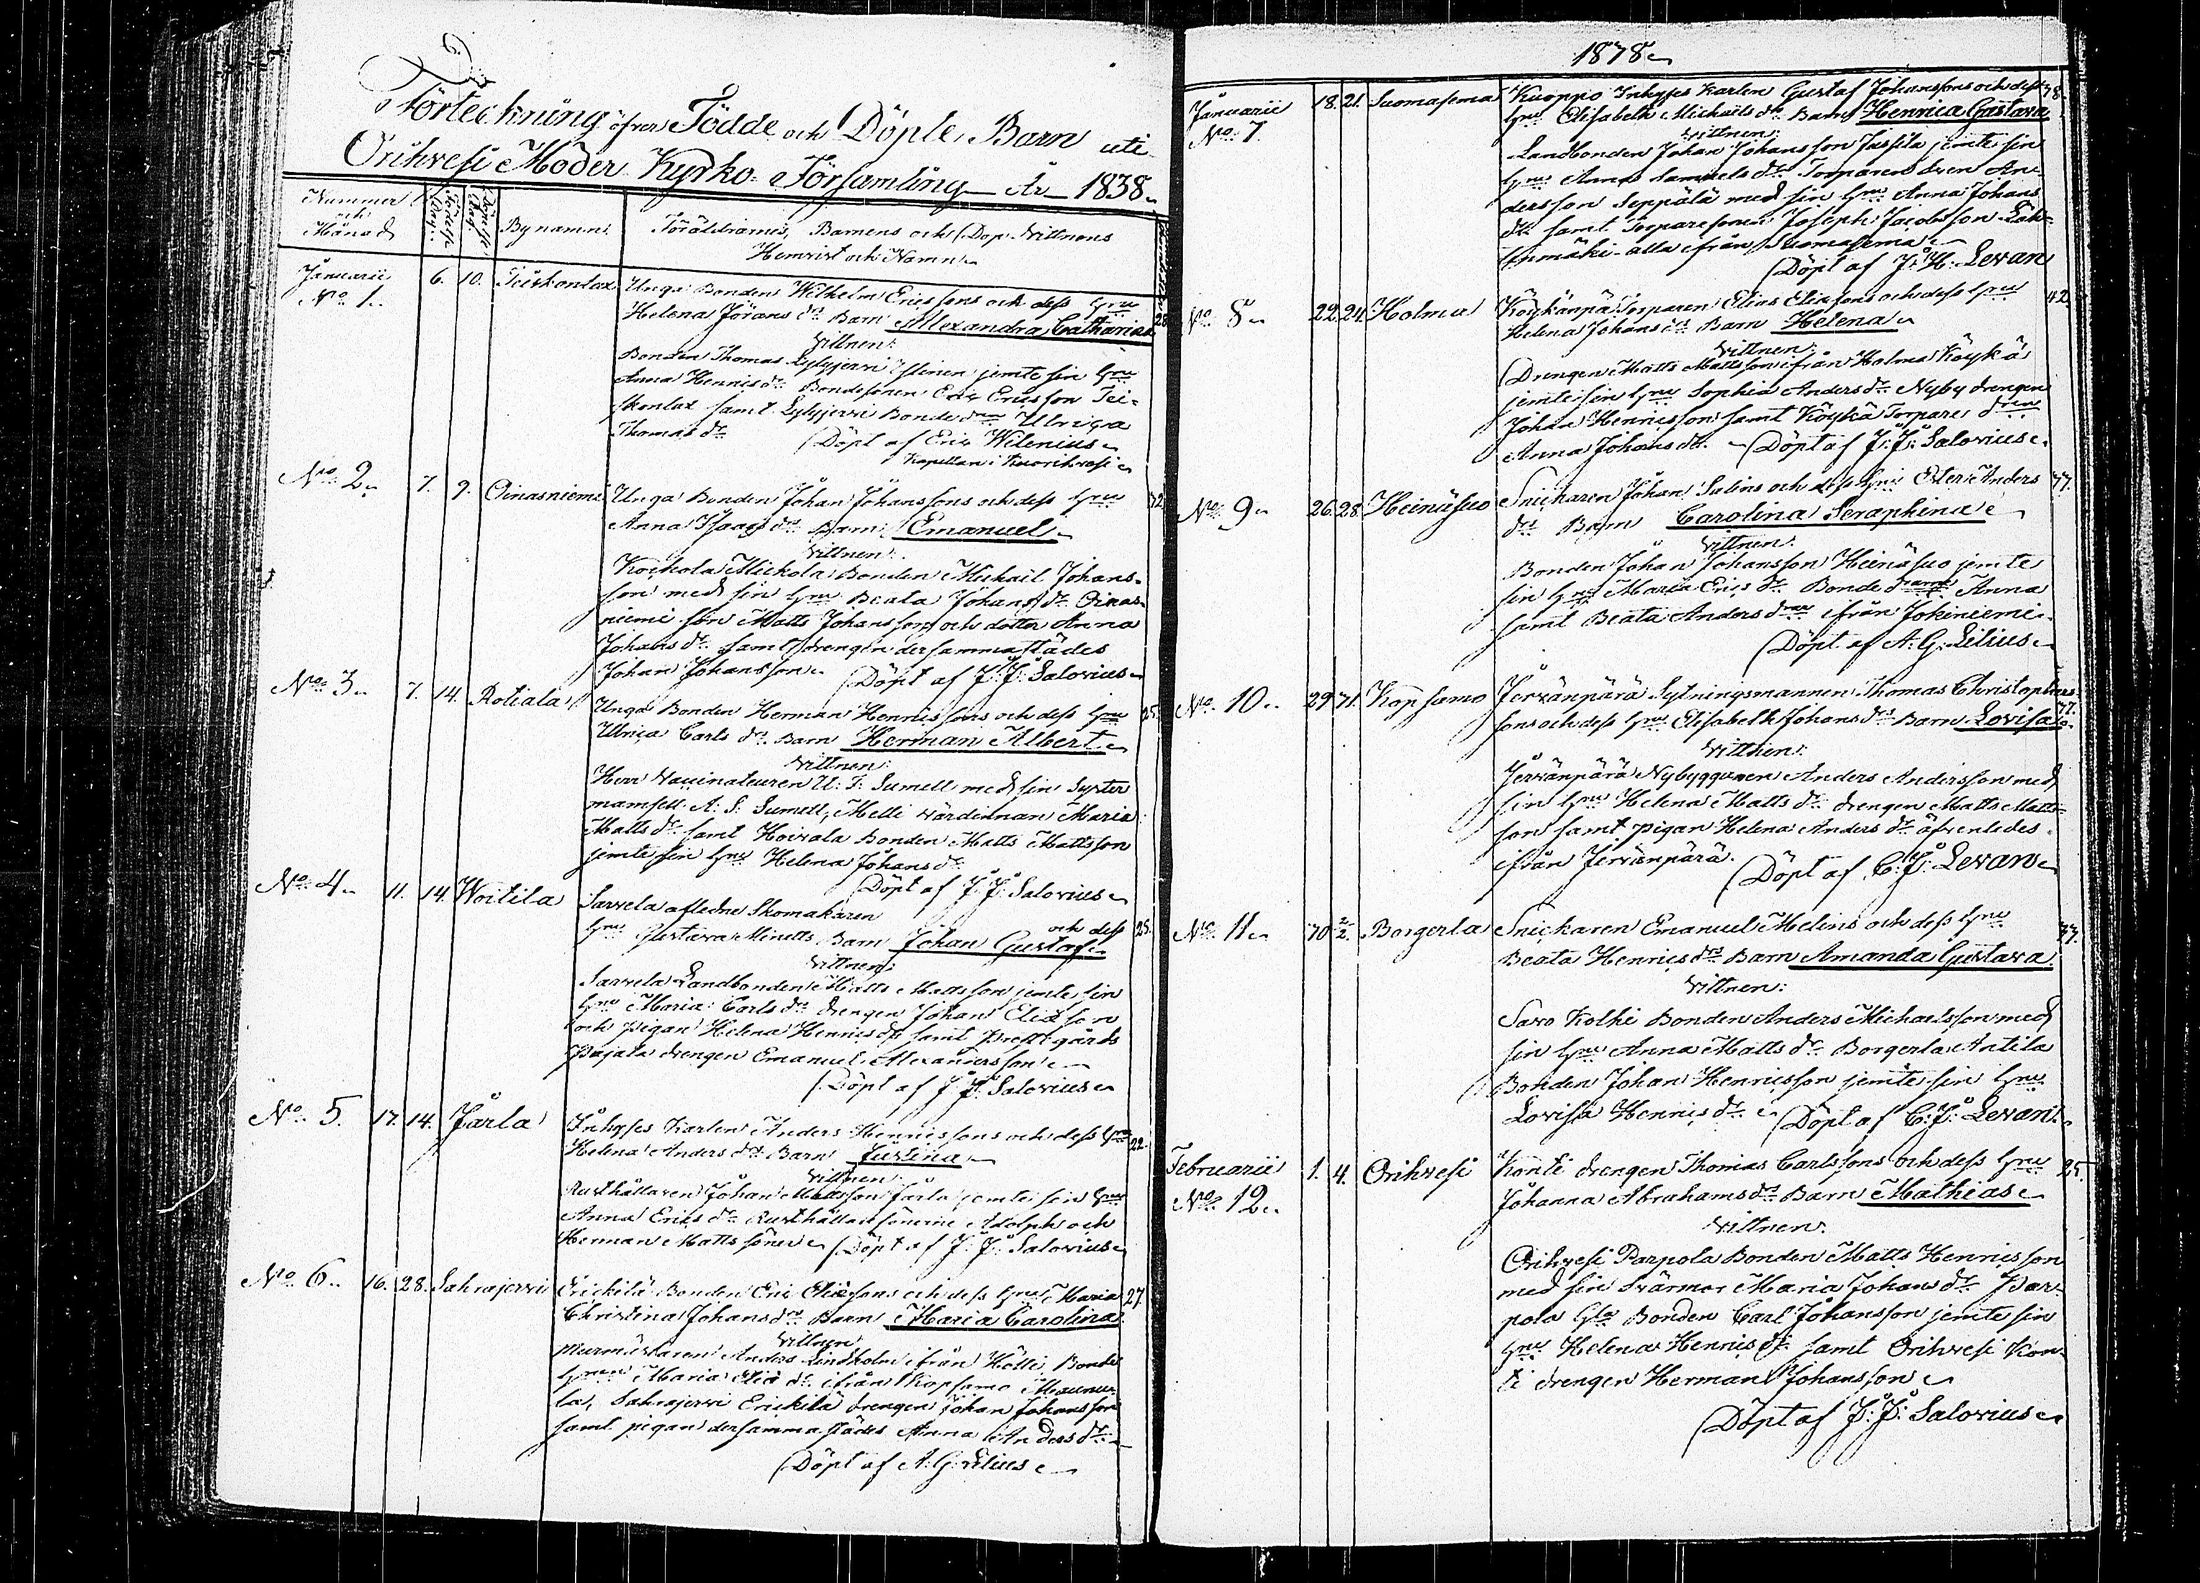 Förteckning öfver Födde och Döpte Barn uti
Orihvesi Moder Kyrko-Församling År 1838
Nummer och Månad
Födelse Dag
Döpelse Dag
Bynamn
Föräldrarnes, Barnens och Dop-Vittnens
Hemvist och Namn
Januarii
No 1. 6. 10. Teiskonlax Unga Bonden Wilhelm Ericssons och dess hru 28
Helena Jörans dr Barn Alexandra Catharina
Vittnen:
Bonden Thomas Lylyjervi jemte sin hru
Anna Henrics dr Bondesonen Eric Ericsson Tei-
skonlax samt Lylyjervi Bonde dren Ulrica
Thomas dr Döpt af Eric Wilenius
Kapellan i Kuorihvesi
No 2. 7. 9. Oinasniemi Unga Bonden Johan Johanssons och dess hru 32
Anna Isaacs dr Barn Emanuel
Vittnen:
Kockola Mickola Bonden Michail Johans-
son med sin hru Beata Johans dr Oinas-
niemi son Matts Johansson och dotter Anna
Johans dr samt drengen dersammastädes
Johan Johansson Döpt af J. J. Salovius
No 3. 7. 14. Rotiala Unga Bonden Herman Henricssons och dess hru 25
Ulrica Carls dr Barn Herman Albert
Vittnen:
Herr Vaccinateuren U. F. Sumell med sin Syster
mamsell A. S. Sumell, Melli värdinnan Maria
Matts dr samt Hoivala Bonden Matts Mattsson
jemte sin hru Helena Johans dr
Döpt af J. J. Salovius
No 4. 11. 14. Woitila Sarvela afledne Skomakaren
och dess 25.
hru Gustava Minetts Barn Johan Gustaf
Vittnen:
Sarvela Landbonden Matts Mattsson jemte sin
hru Maria Carls dr drengen Johan Eliasson
och pigan Helena Henrics dr samt Prestgårds
Pajala drengen Emanuel Alexandersson
Döpt af J. J. Salovius
No 5. 17. 14. Järla Inhyses Karlen Anders Henricssons och dess hru 22.
Helena Anders dr Barn Justina
Vittnen:
Rusthållaren Johan Mattsson Järla jemte sin hru
Anna Erics dr Rusthållare sönerne Adolph och
Herman Matts söner Döpt af J. J. Salovius
No 6. 16. 28. Sahrajervi Erickilä Bonden Eric Eliassons och dess hru Maria 27.
Christina Johans dr Barn Maria Carolina
Vittnen
Murmästaren Anders Lindholm ifrån Hölli Bonde
hrun Maria Elia dr ifrån Kopsamo Maunu-
la, Sahrajervi Erickilä drengen Johan Johansson
samt pigan dersammastädes Anna Anders dr
Döpt af A. G. Lilius
1838
Januarii
No 7. 18. 21. Suomasema Kuoppo Inhyses Karlen Gustaf Johanssons och dess 38.
hru Elisabeth Michaels dr Barn Henrica Gustava
Vittnen:
Landbonden Johan Johansson Jussila jemte sin
hru Anna Samuels dr Torparen Sven An-
dersson Seppälä med sin hru Anna Johans
dr samt Torparesonen Joseph Jacobsson Läh-
temäki alla ifrån Suomasema
Döpt af J. H. Levan
No 8. 22. 24. Holma Köykänpä Torparen Elias Eliassons och dess hru 42.
Helena Johans dr Barn Helena
Vittnen
Drengen Matts Mattsson ifrån Holma Köykä
jemte sin hru Sophia Anders dr Nyby drengen
Johan Henricsson samt Köykä Torpare dren
Anna Johans dr. Döpt af J. J. Salovius
No 9. 26. 28. Heinäsuo Snickaren Johan Salins och dess hru Ester Anders 37.
dr Barn Carolina Seraphina
Vittnen:
Bonden Johan Johansson Heinäsuo jemte
sin hru Maria Erics dr Bonde drarne Anna
samt Beata Anders drar ifrån Jokiniemi
Döpt af A. G. Lilius
No 10. 29. 31. Kopsamo Jervänpärä Sytningsmannen Thomas Christophers
sons och dess hru Elisabeth Johans drs Barn Lovisa
Vittnen:
Jervänpärä Nybyggaren Anders Andersson med
sin hru Helena Matts dr drengen Matts Matts-
son samt pigan Helena Anders dr äfvenledes
ifrån Jervänpärä.
Döpt af C. J. Levan
No 11. 30 2/2. Borgerla Snickaren Emanuel Melins och dess hru 33.
Beata Henrics drs Barn Amanda Gustava
Vittnen:
Savo Kolhi Bonden Anders Michaelsson med
sin hru Anna Matts dr Borgerla Antila
Bonden Johan Henricsson jemte sin hru
Lovisa Henrics dr Döpt af C. J. Levan
Februarii
No 12. 1. 4. Orihvesi Konti drengen Thomas Carlssons och dess hru 25.
Johanna Abrahams drs Barn Mathias
Vittnen.
Orihvesi Parpola Bonden Matts Henricsson
med sin Svärmor Maria Johans dr Par-
pola Gla Bonden Carl Johansson jemte sin
hru Helena Henrics dr samt Orihvesi Kon-
ti drengen Herman Johansson
Döpt af J. J. Salovius